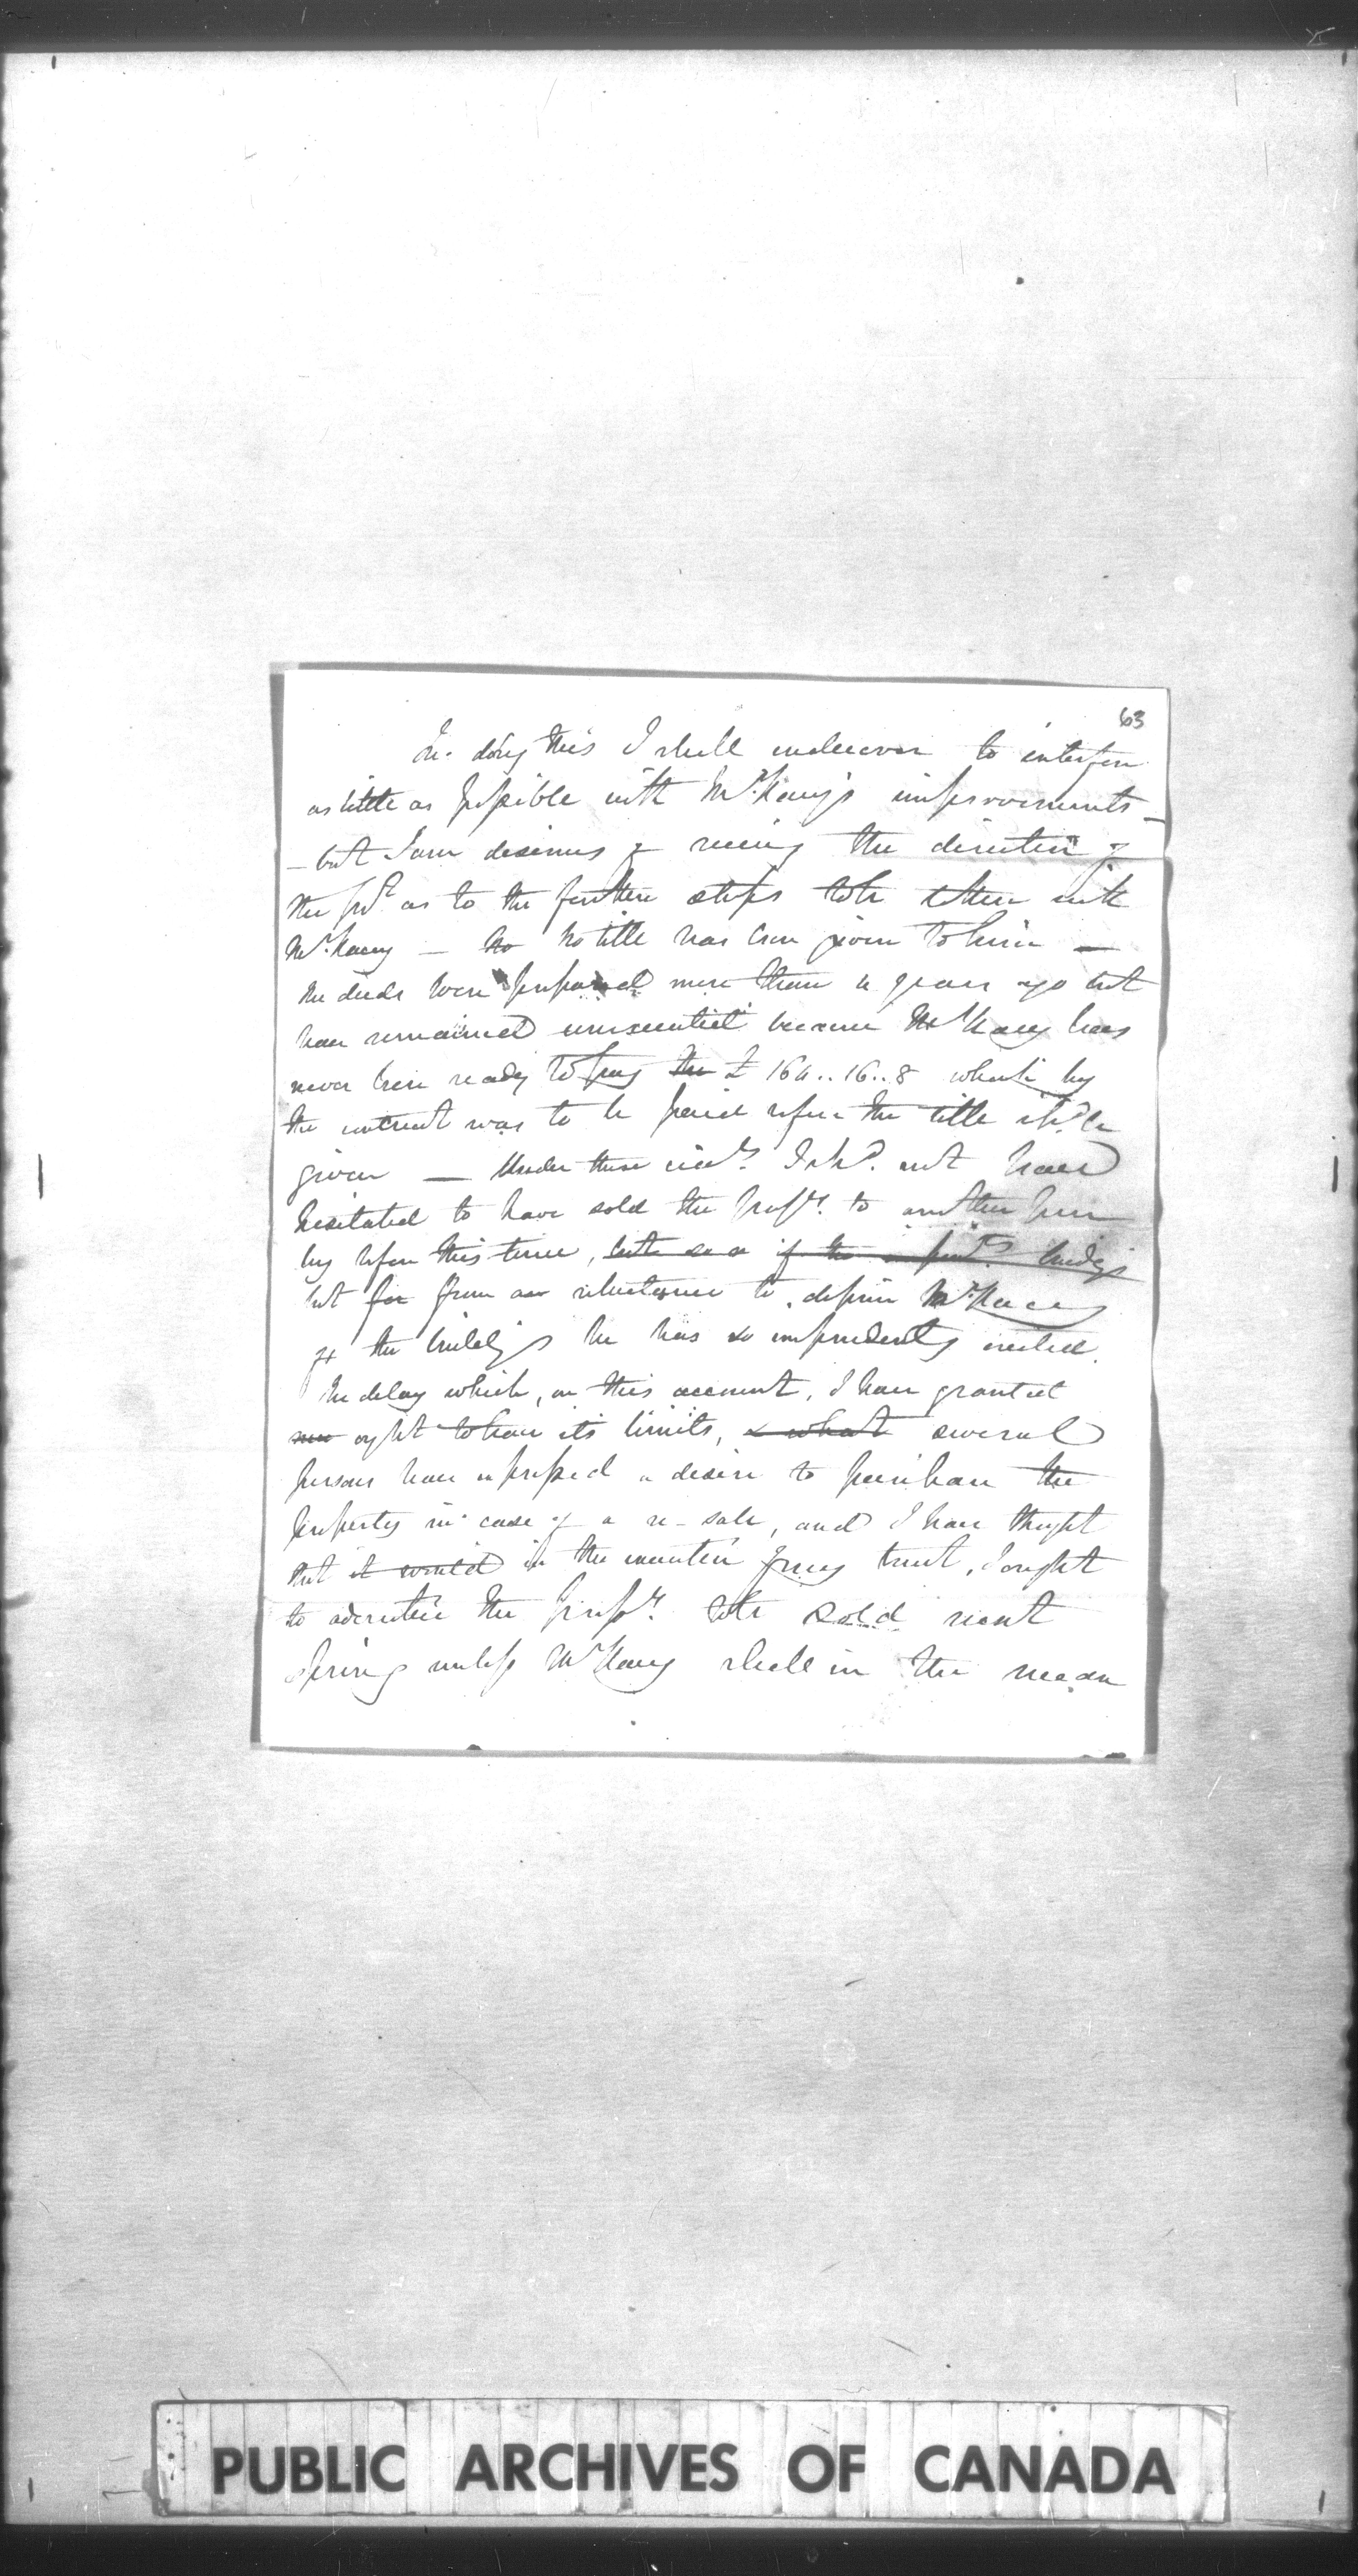 63
In doing this I shall endeavor to interfere
as little as possible with McKay's improvements -
- but I am desirous of receiving the direction of
the as to the further steps to be taken with
McKay - No No title has been given to him -
The deeds were prepared more than a year ago but
have remained unexecuted because McKay has
never been ready to pay the £ 164..16..8 which by
the contract was to be paid before the title shd. be
given - Under these circs. I shd. not have
hesitated to have sold the propy. to another person
by before this time, but
but for from a reluctance to deprive McKay
of the buildings he has so imprudently erected.
The delay which, on this account, I have granted
ought to have its limits, & what several
persons have expressed a desire to purchase the
property in case of a re-sale, and I have thought
that it would in the execution of my trust, I ought
to advertise the propy. to be sold next
Spring unless McKay shall in the mean
PUBLIC ARCHIVES OF CANADA